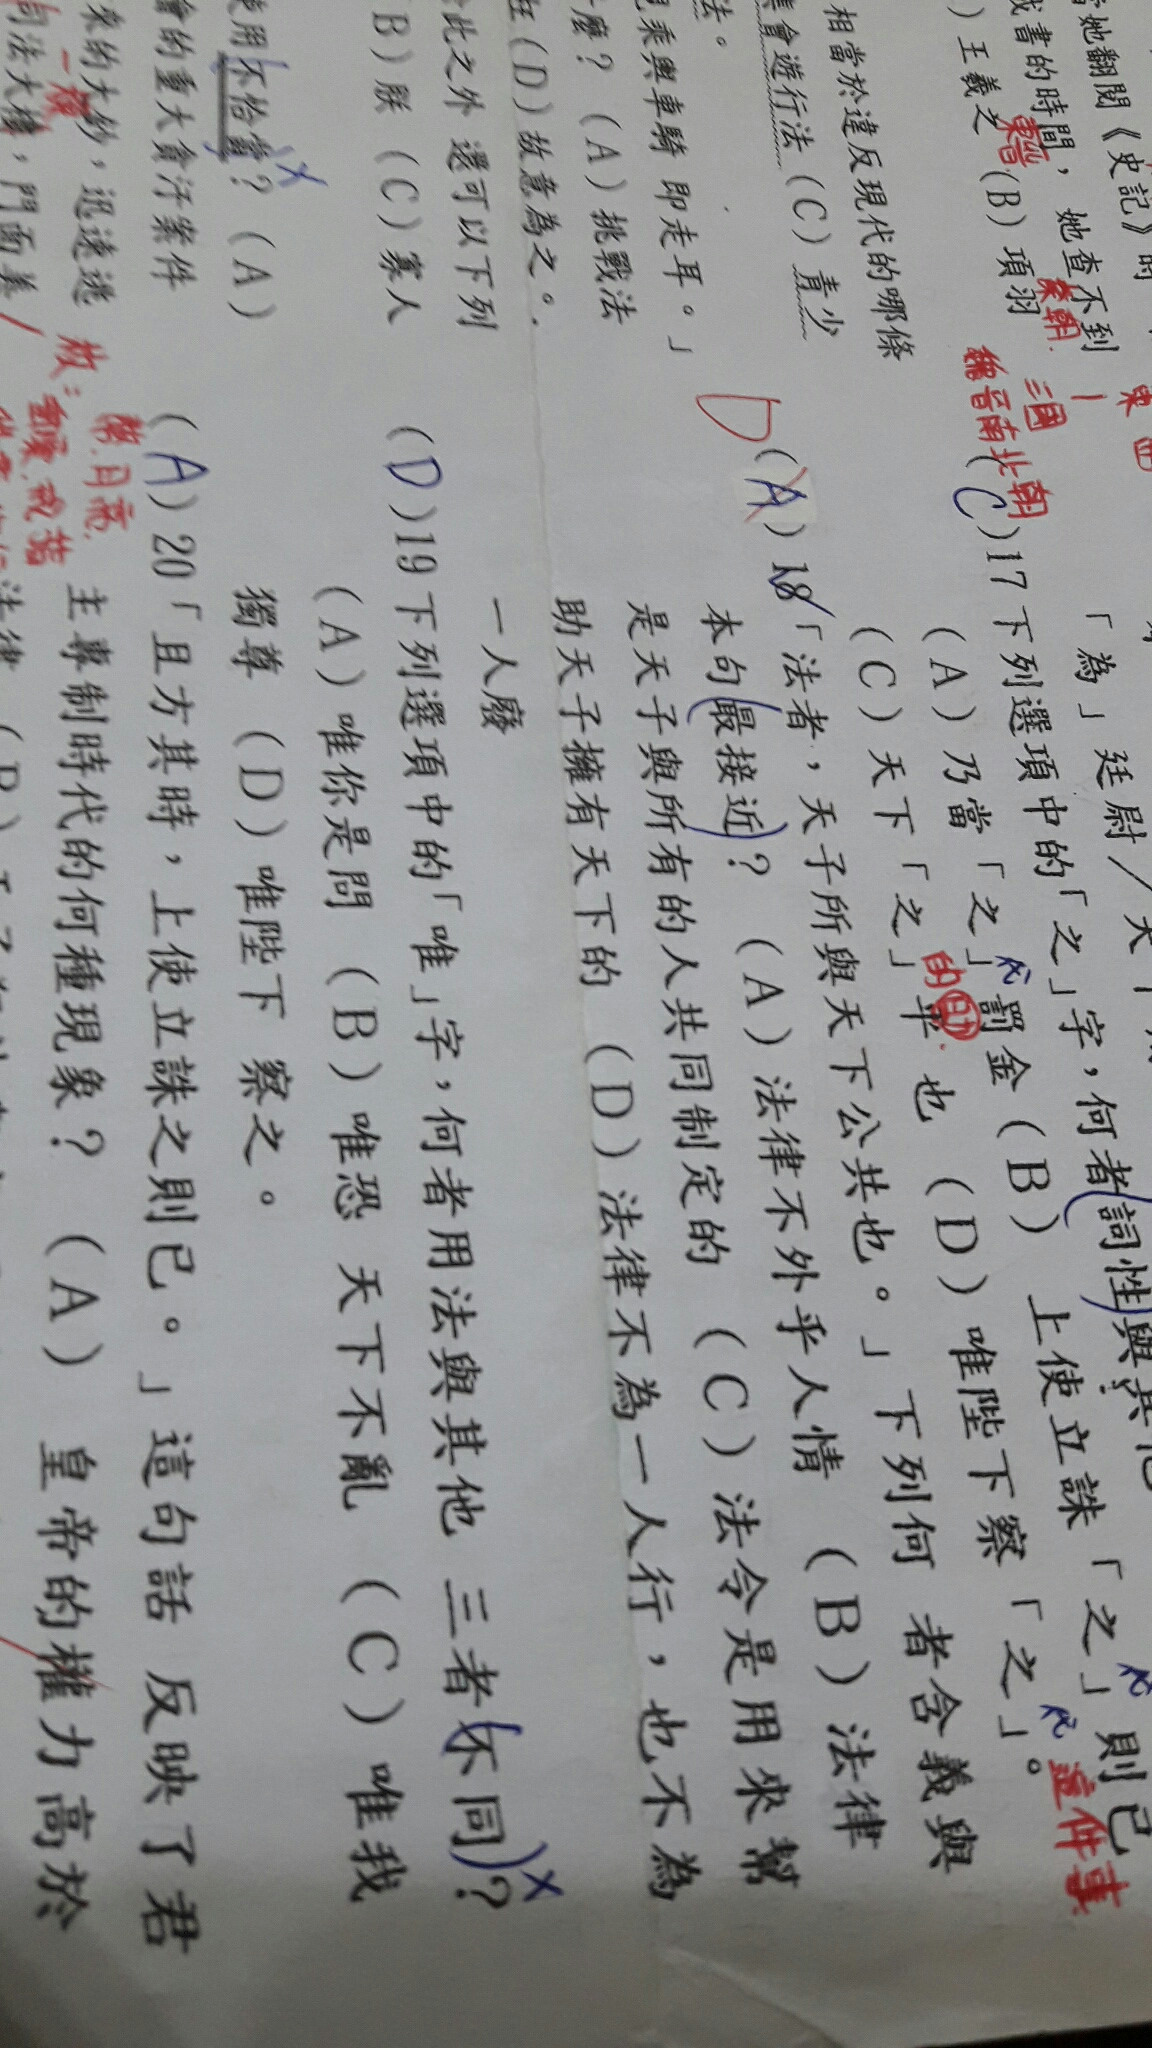 當她翻閱《史記》時
成書的時間，她查不到
王羲之 (B) 項羽
東晉
秦朝
相當於違反現代的哪條
集會遊行法 (C) 青少
法。
見乘輿車騎 即走耳。」
什麼？ (A) 挑戰法
(D) 故意為之。
此之外 還可以下列
B) 朕 (C) 寡人
使用不恰當？ (A) X
會的重大貪汙案件
來的大鈔，迅速逃
司法大樓，門面美
三國
魏晉南北朝
「為」廷尉／天下
(C)17下列選項中的「之」字，何者詞性與其他
(A) 乃當「之」罰金 (B) 上使立誅「之」則已
代 代
(C) 天下「之」平也 (D) 唯陛下察「之」。
的 助 代 這件事
D (A) 18「法者，天子所與天下公共也。」下列何 者含義與
本句最接近？ (A) 法律不外乎人情 (B) 法律
是天子與所有的人共同制定的 (C) 法令是用來幫
助天子擁有天下的 (D) 法律不為一人行，也不為
一人廢
(D)19下列選項中的「唯」字，何者用法與其他 三者不同？ X
(A) 唯你是問 (B) 唯恐 天下不亂 (C) 唯我
獨尊 (D) 唯陛下 察之。
(A)20「且方其時，上使立誅之則已。」這句話 反映了君
主專制時代的何種現象？ (A) 皇帝的權力高於